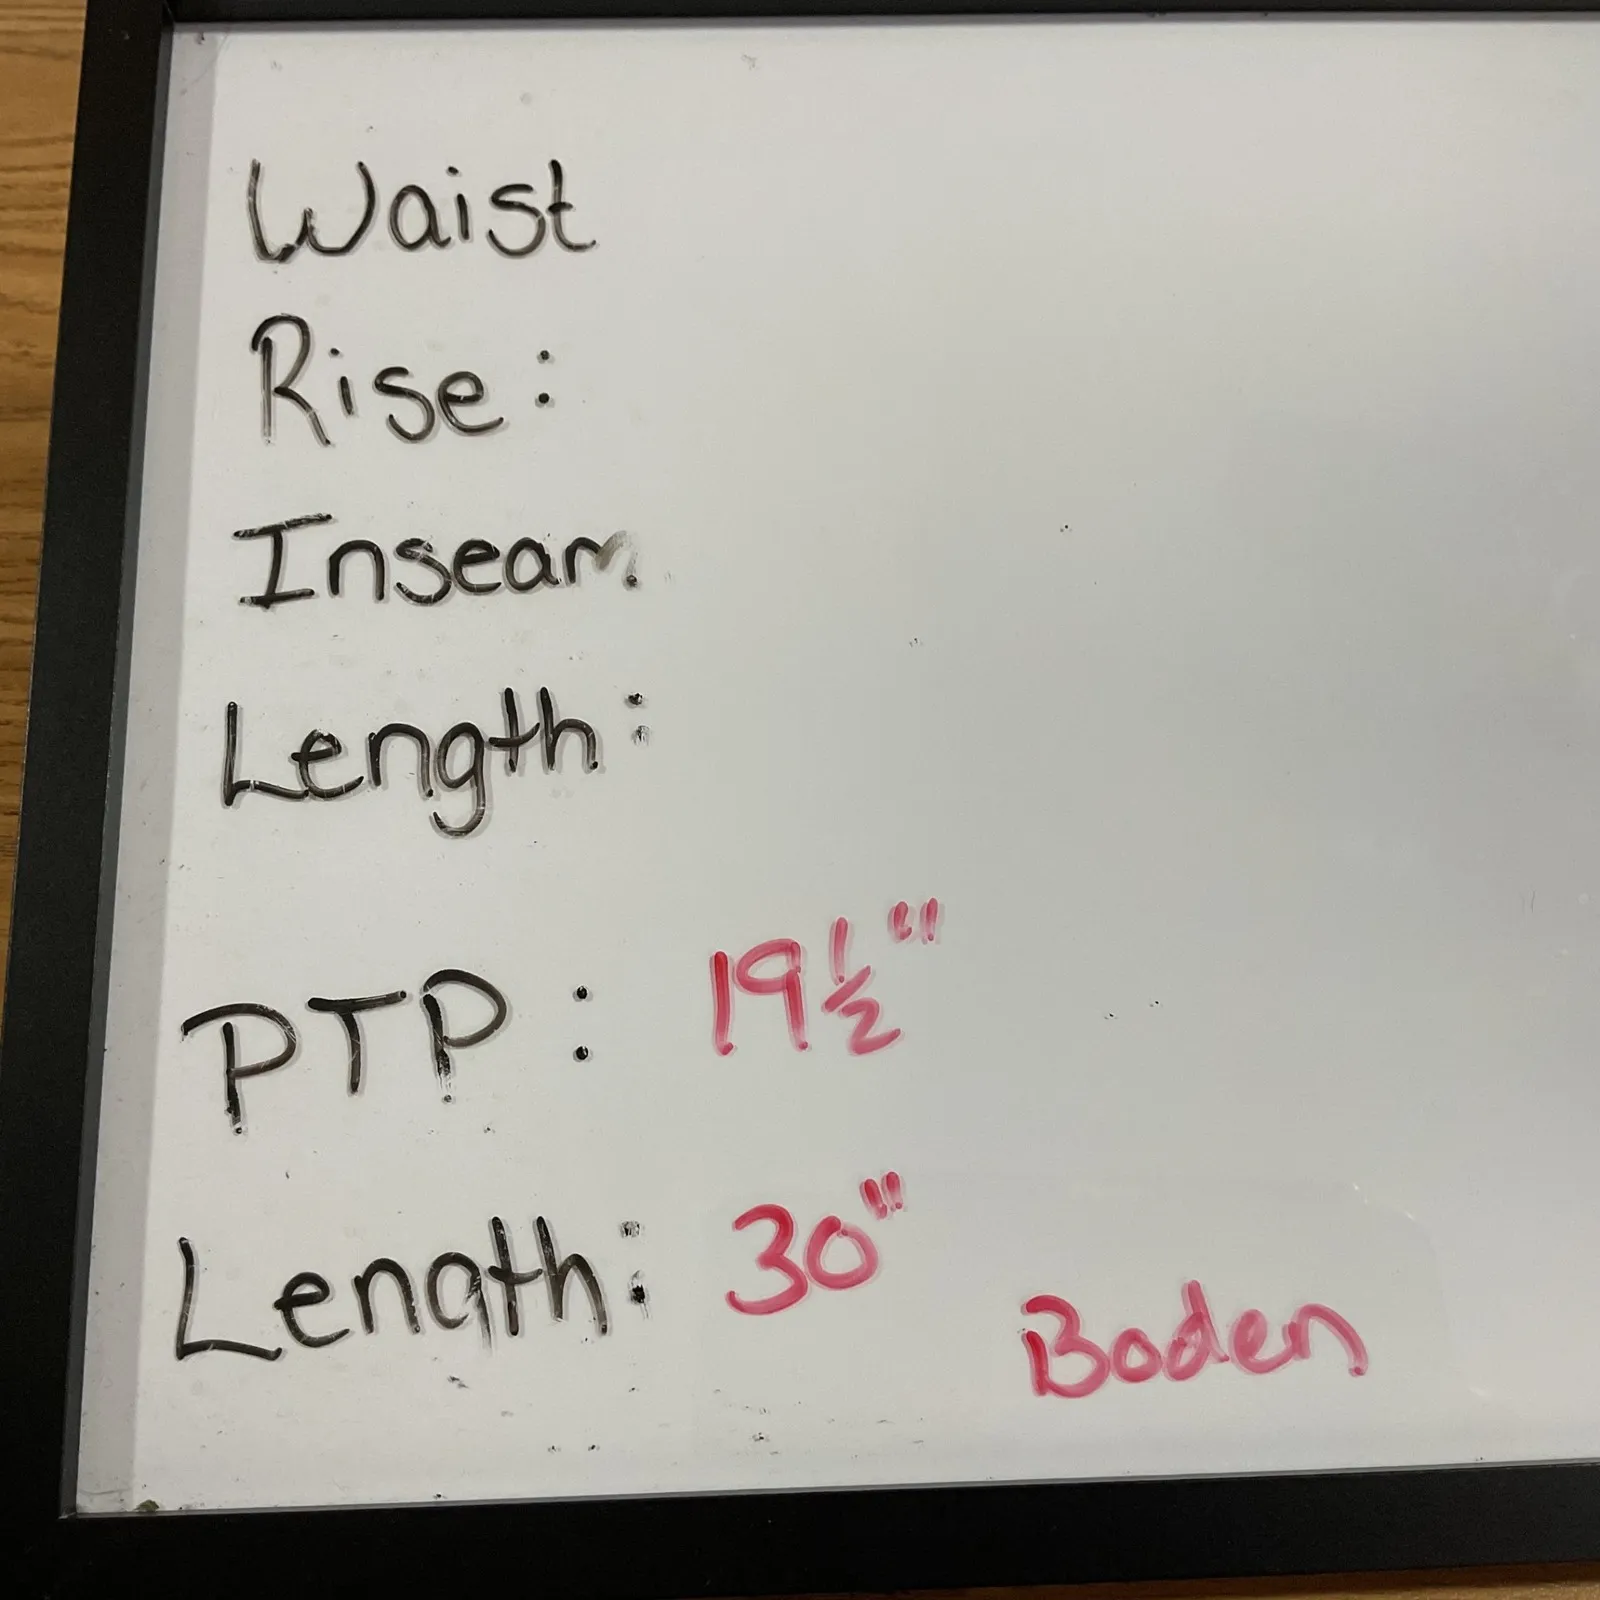 Waist
Rise:
Inseam
Length:
PTP: 19 1/2"
Length: 30"
Boden